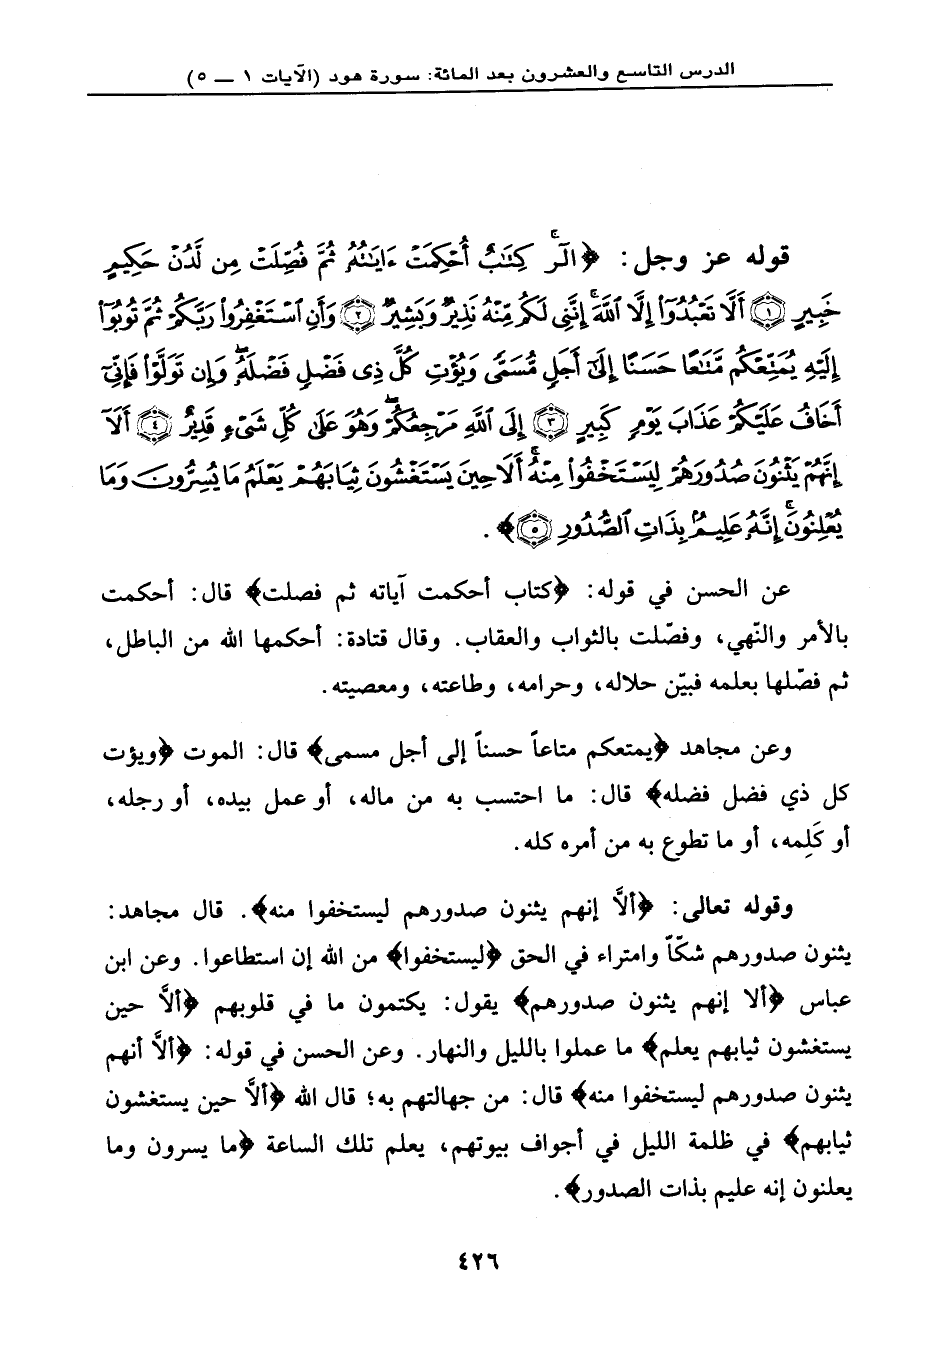 الدرس التاسع والعشرون بعد المائة: سورة هود (الآيات ١ ــ ٥)
قوله عز وجل: ﴿الٓرۚ كِتَٰبٌ أُحۡكِمَتۡ ءَايَٰتُهُۥ ثُمَّ فُصِّلَتۡ مِن لَّدُنۡ حَكِيمٍ
خَبِيرٍ ۝١ أَلَّا تَعۡبُدُوٓاْ إِلَّا ٱللَّهَۚ إِنَّنِي لَكُم مِّنۡهُ نَذِيرٞ وَبَشِيرٞ ۝٢ وَأَنِ ٱسۡتَغۡفِرُواْ رَبَّكُمۡ ثُمَّ تُوبُوٓاْ
إِلَيۡهِ يُمَتِّعۡكُم مَّتَٰعًا حَسَنًا إِلَىٰٓ أَجَلٖ مُّسَمّٗى وَيُؤۡتِ كُلَّ ذِي فَضۡلٖ فَضۡلَهُۥۖ وَإِن تَوَلَّوۡاْ فَإِنِّيٓ
أَخَافُ عَلَيۡكُمۡ عَذَابَ يَوۡمٖ كَبِيرٍ ۝٣ إِلَى ٱللَّهِ مَرۡجِعُكُمۡۖ وَهُوَ عَلَىٰ كُلِّ شَيۡءٖ قَدِيرٌ ۝٤ أَلَآ
إِنَّهُمۡ يَثۡنُونَ صُدُورَهُمۡ لِيَسۡتَخۡفُواْ مِنۡهُۚ أَلَا حِينَ يَسۡتَغۡشُونَ ثِيَابَهُمۡ يَعۡلَمُ مَا يُسِرُّونَ وَمَا
يُعۡلِنُونَۚ إِنَّهُۥ عَلِيمُۢ بِذَاتِ ٱلصُّدُورِ ۝٥﴾.
عن الحسن في قوله: ﴿كتاب أحكمت آياته ثم فصلت﴾ قال: أحكمت
بالأمر والنّهي، وفصّلت بالثواب والعقاب. وقال قتادة: أحكمها الله من الباطل،
ثم فصّلها بعلمه فبيّن حلاله، وحرامه، وطاعته، ومعصيته.
وعن مجاهد ﴿يمتعكم متاعاً حسناً إلى أجل مسمى﴾ قال: الموت ﴿ويؤت
كل ذي فضل فضله﴾ قال: ما احتسب به من ماله، أو عمل بيده، أو رجله،
أو كَلِمه، أو ما تطوع به من أمره كله.
وقوله تعالى: ﴿ألاَّ إنهم يثنون صدورهم ليستخفوا منه﴾. قال مجاهد:
يثنون صدورهم شكّاً وامتراء في الحق ﴿ليستخفوا﴾ من الله إن استطاعوا. وعن ابن
عباس ﴿ألا إنهم يثنون صدورهم﴾ يقول: يكتمون ما في قلوبهم ﴿ألاَّ حين
يستغشون ثيابهم يعلم﴾ ما عملوا بالليل والنهار. وعن الحسن في قوله: ﴿ألاَّ أنهم
يثنون صدورهم ليستخفوا منه﴾ قال: من جهالتهم به؛ قال الله ﴿ألاَّ حين يستغشون
ثيابهم﴾ في ظلمة الليل في أجواف بيوتهم، يعلم تلك الساعة ﴿ما يسرون وما
يعلنون إنه عليم بذات الصدور﴾.
٤٢٦